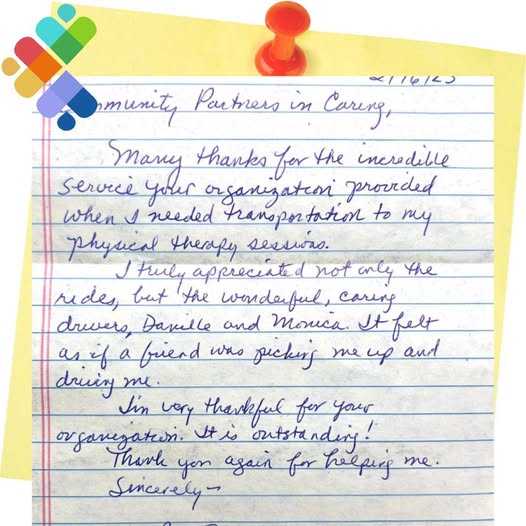 2/16/23
Community Partners in Caring,
Many thanks for the incredible
service your organization provided
when I needed transportation to my
physical therapy sessions.
I truly appreciated not only the
rides, but the wonderful, caring
drivers, Danille and Monica. It felt
as if a friend was picking me up and
driving me.
I'm very thankful for your
organization. It is outstanding!
Thank you again for helping me.
Sincerely-